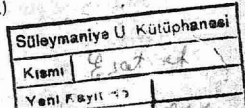 Süleymaniye U. Kütüphanesi
Kısmı Esat ef.
Yeni Kayıt No